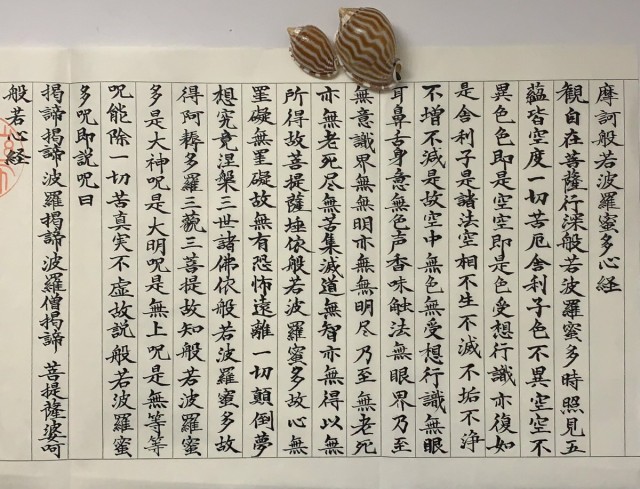 摩訶般若波羅蜜多心経
観自在菩薩行深般若波羅蜜多時照見五
蘊皆空度一切苦厄舎利子色不異空空不
異色色即是空空即是色受想行識亦復如
是舎利子是諸法空相不生不滅不垢不浄
不増不減是故空中無色無受想行識無眼
耳鼻舌身意無色声香味触法無眼界乃至
無意識界無無明亦無無明尽乃至無老死
亦無老死尽無苦集滅道無智亦無得以無
所得故菩提薩埵依般若波羅蜜多故心無
罣礙無罣礙故無有恐怖遠離一切顛倒夢
想究竟涅槃三世諸佛依般若波羅蜜多故
得阿耨多羅三藐三菩提故知般若波羅蜜
多是大神呪是大明呪是無上呪是無等等
呪能除一切苦真実不虚故説般若波羅蜜
多呪即説呪曰
揭諦揭諦波羅揭諦波羅僧揭諦 菩提薩婆呵
般若心経